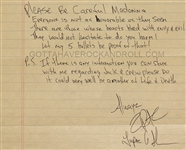 Please Be Careful Madonna
Everyone is not as honorable as they seem
There are those whose hearts bleed with envy & evil
They would not hesitate to do you harm!
Let my 5 bullets be proof of that!!
P.S If there is any information you can share
with me regarding Jack & crew please do
it could very well be a matter of Life & Death
Always
GOTTAHAVEROCKANDROLL.COM